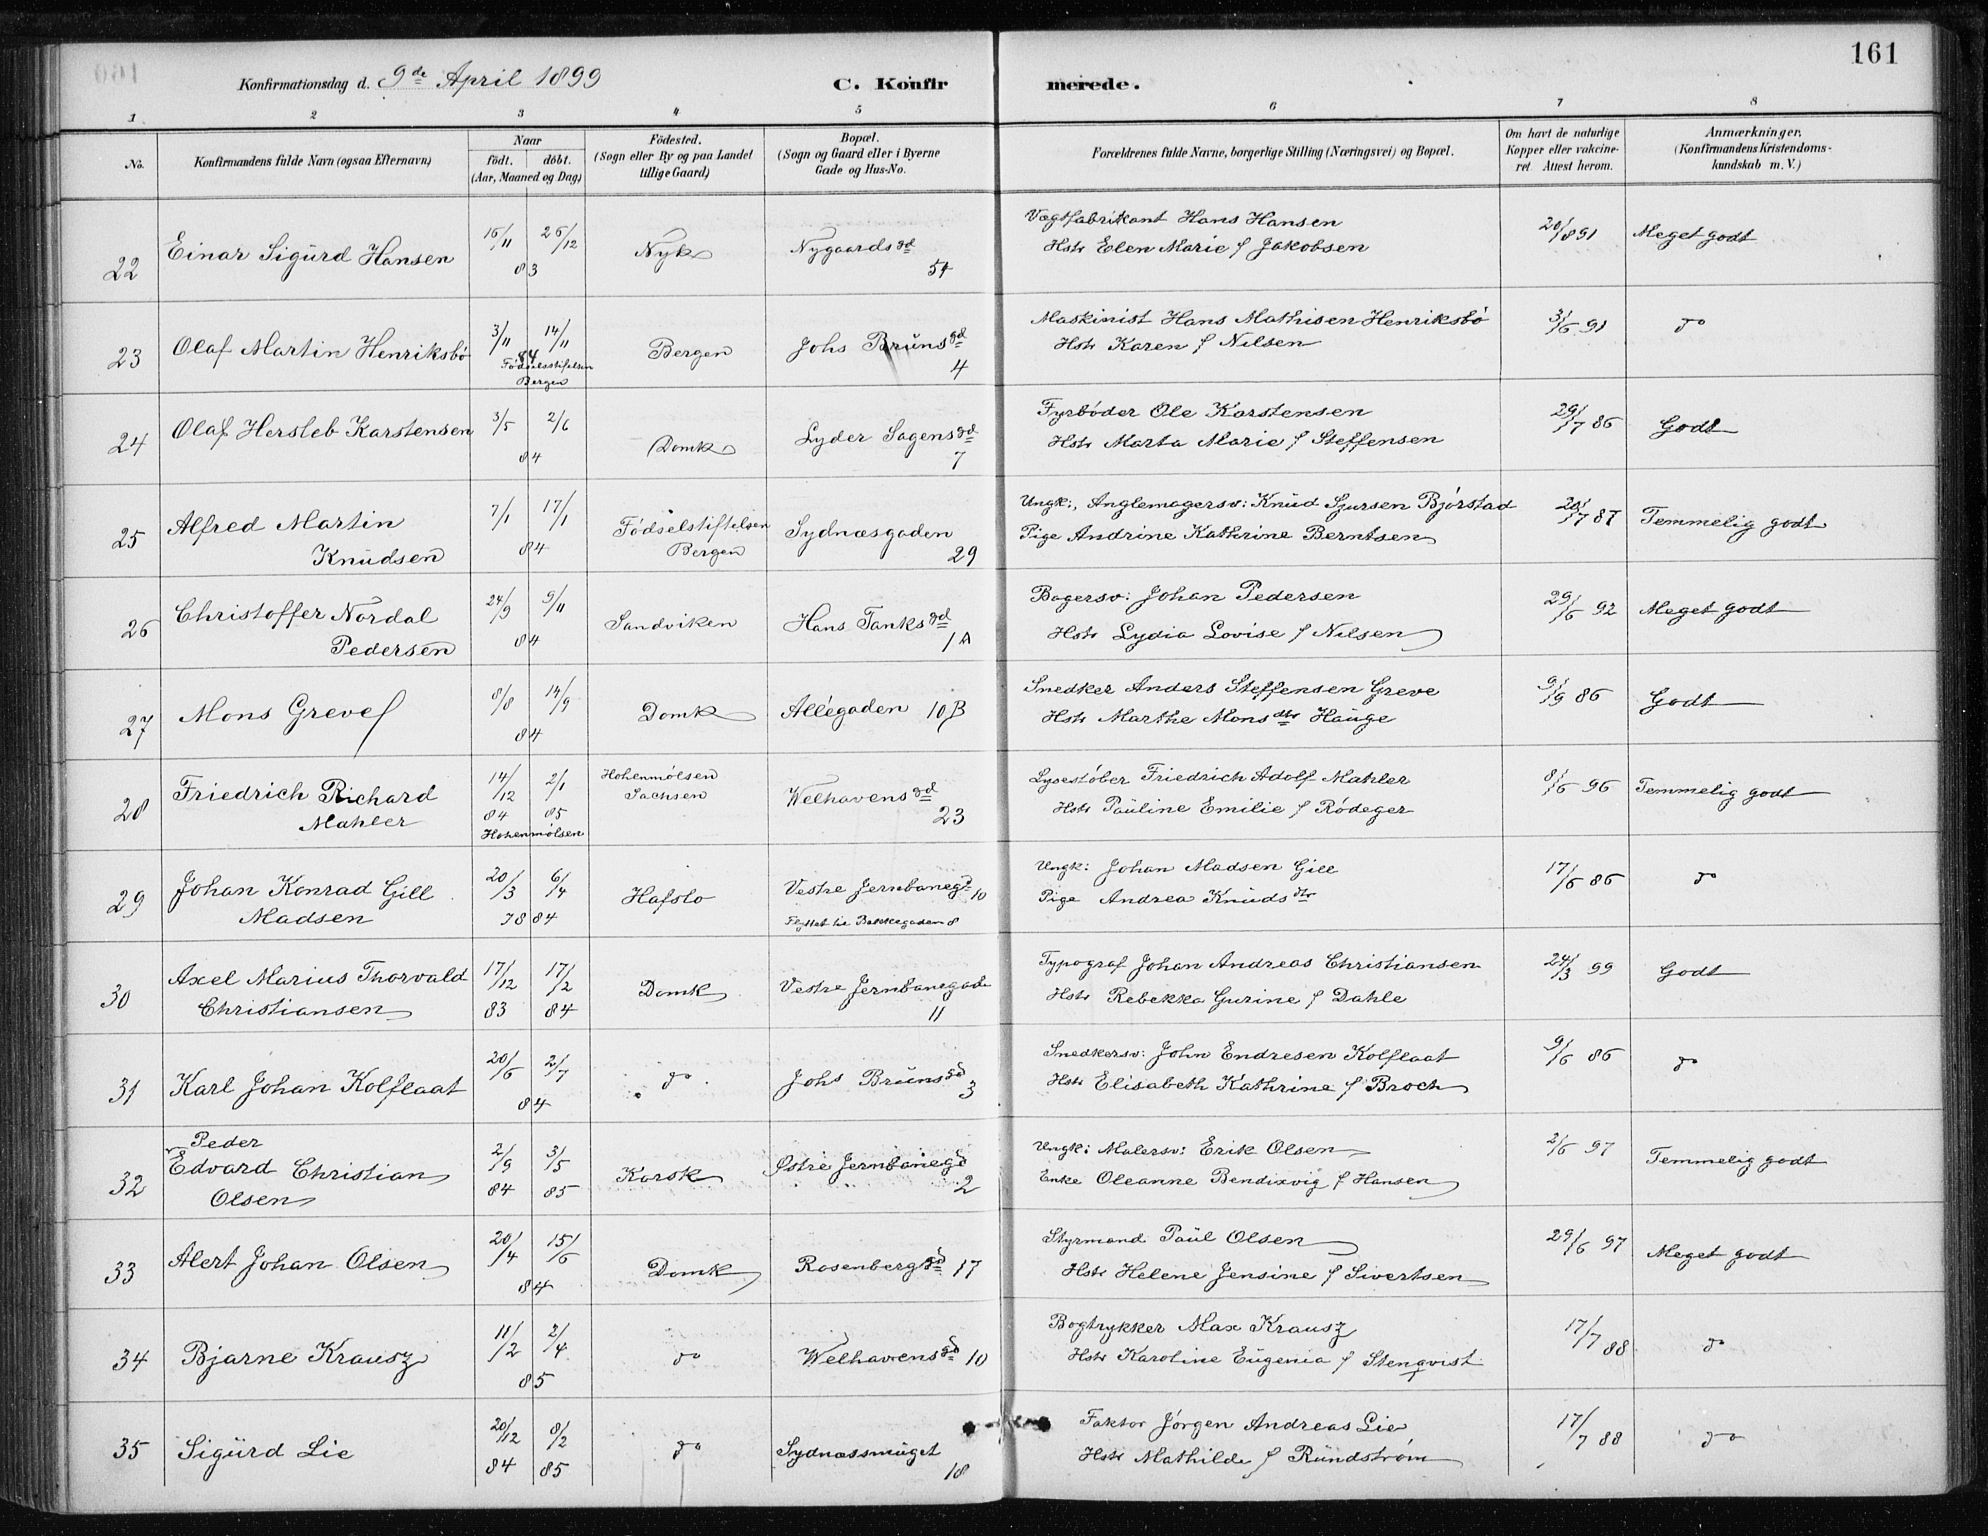 161
Konfirmationsdag d. 9de April 1899 C. Konfir merede.
1 2 3 4 5 6 7 8
No. Konfirmandens fulde Navn (ogsaa Efternavn)
Naar
født. døbt.
(Aar, Maaned og Dag)
Fødested.
(Sogn eller By og paa Landet
tillige Gaard)
Bopæl.
(Sogn og Gaard eller i Byerne
Gade og Hus-No.
Forældrenes fulde Navne, borgerlige Stilling (Næringsvei) og Bopæl.
Om havt de naturlige
Kopper eller vakcine-
ret Attest herom.
Anmærkninger.
(Konfirmandens Kristendoms-
kundskab m. V.)
22 Einar Sigurd Hansen 16/11 26/12 83 Nyk Nygaardsgd 54
Vægtfabrikant Hans Hansen
Hstr Elen Marie f Jakobsen
20/8 91 Meget godt
23 Olaf Martin Henriksbø 3/11 14/11 84
Fødselsstiftelsen
Bergen
Bergen Johs Brunsgd 4
Maskinist Hans Mathisen Henriksbø
Hstr Karen f Nilsen
3/6 91 do
24 Olaf Hersleb Karstensen 3/5 2/6 84 Domk Lyder Sagensgd 7
Fyrbøder Ole Karstensen
Hstr Marta Marie f Steffensen
29/7 86 Godt
25 Alfred Martin
Knudsen
7/1 17/1 84
Fødselstiftelsen
Bergen
Sydnæsgaden 29
Ungk:, Anglemagersv: Knud Sjursen Bjørstad
Pige Andrine Kathrine Berntsen
20/7 87 Temmelig godt
26 Christoffer Nordal
Pedersen
24/9 9/11 84 Sandviken Hans Tanksgd 1A
Bagersv: Johan Pedersen
Hstr Lydia Lovise f Nilsen
29/6 92 Meget godt
27 Mons Greve 8/8 14/9 84 Domk Allégaden 10B
Snedker Anders Steffensen Greve
Hstr Marthe Monsdtr Hauge
9/9 86 Godt
28 Friedrich Richard
Mahler
14/12 84 2/1 85
Hohenmølsen
Hohenmølsen
Sachsen
Welhavensgd 23
Lysestøber Friedrich Adolf Mahler
Hstr Pauline Emilie f Rødeger
8/6 96 Temmelig godt
29 Johan Konrad Gill
Madsen
20/3 78 6/4 84 Hafslo Vestre Jernbanegd 10
Flyttet til Bakkegaden 8
Ungk: Johan Madsen Gill
Pige Andrea Knudsdtr
17/6 86 do
30 Axel Marius Thorvald
Christiansen
17/12 83 17/2 84 Domk Vestre Jernbanegade 11
Typograf Johan Andreas Christiansen
Hstr Rebekka Gurine f Dahle
24/3 99 Godt
31 Karl Johan Kolflaat 20/6 2/7 84 do Johs Brunsgd 3
Snedkersv: John Endresen Kolflaat
Hstr Elisabeth Kathrine f Broch
9/6 86 do
Peder
32 Edvard Christian
Olsen
2/9 84 3/5 85 Korsk Østre Jernbanegd 2
Ungk: Malersv: Erik Olsen
Enke Oleanne Bendixvig f Hansen
2/6 97 Temmelig godt
33 Alert Johan Olsen 20/4 15/6 84 Domk Rosenberggd 17
Styrmand Paul Olsen
Hstr Helene Jensine f Sivertsen
29/6 97 Meget godt
34 Bjarne Krausz 11/2 2/4 85 do Welhavensgd 10
Bogtrykker Max Krausz
Hstr Karoline Eugenia f Stenqvist
17/7 88 do
35 Sigurd Lie 20/12 84 8/2 85 do Sydnæssmuget 18
Faktor Jørgen Andreas Lie
Hstr Mathilde f Rundstrøm
17/7 88 do